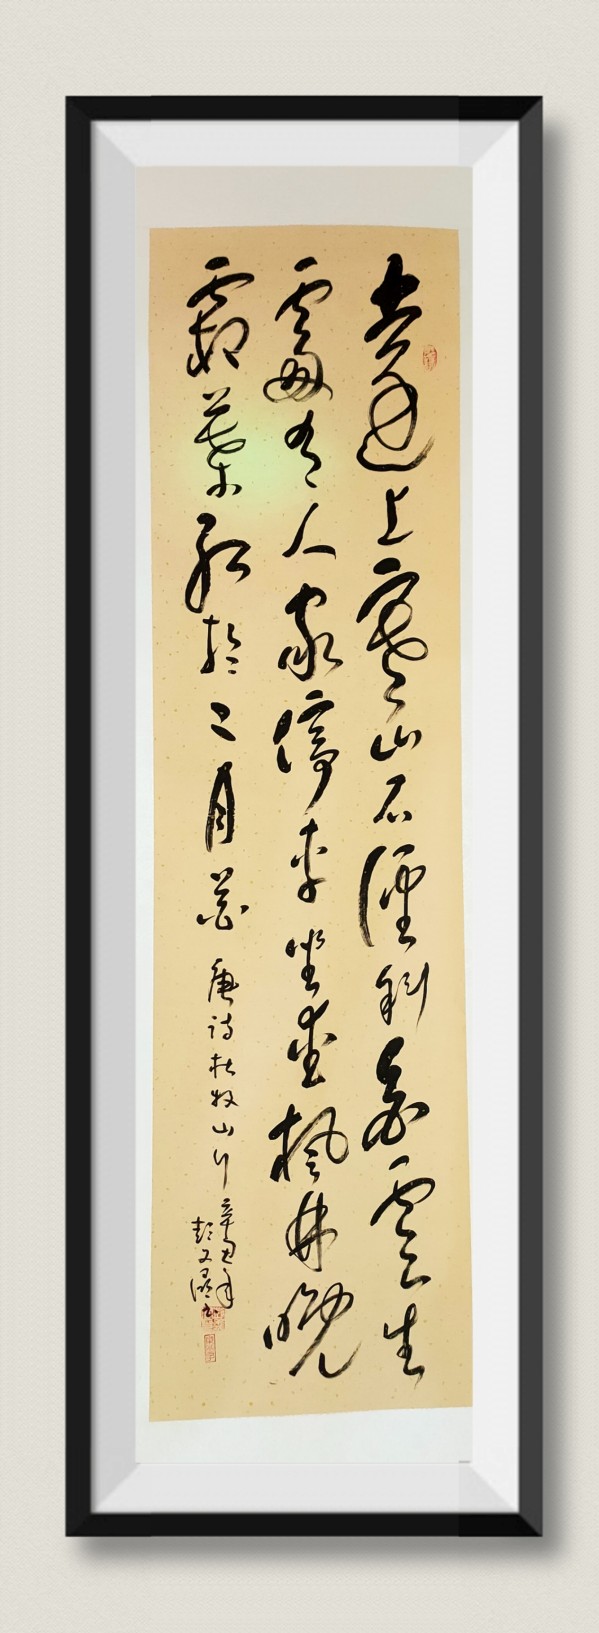 遠上寒山石徑斜白雲生
處有人家停車坐愛楓林晚
霜葉紅於二月花 唐詩杜牧山行
辛丑年
彭又